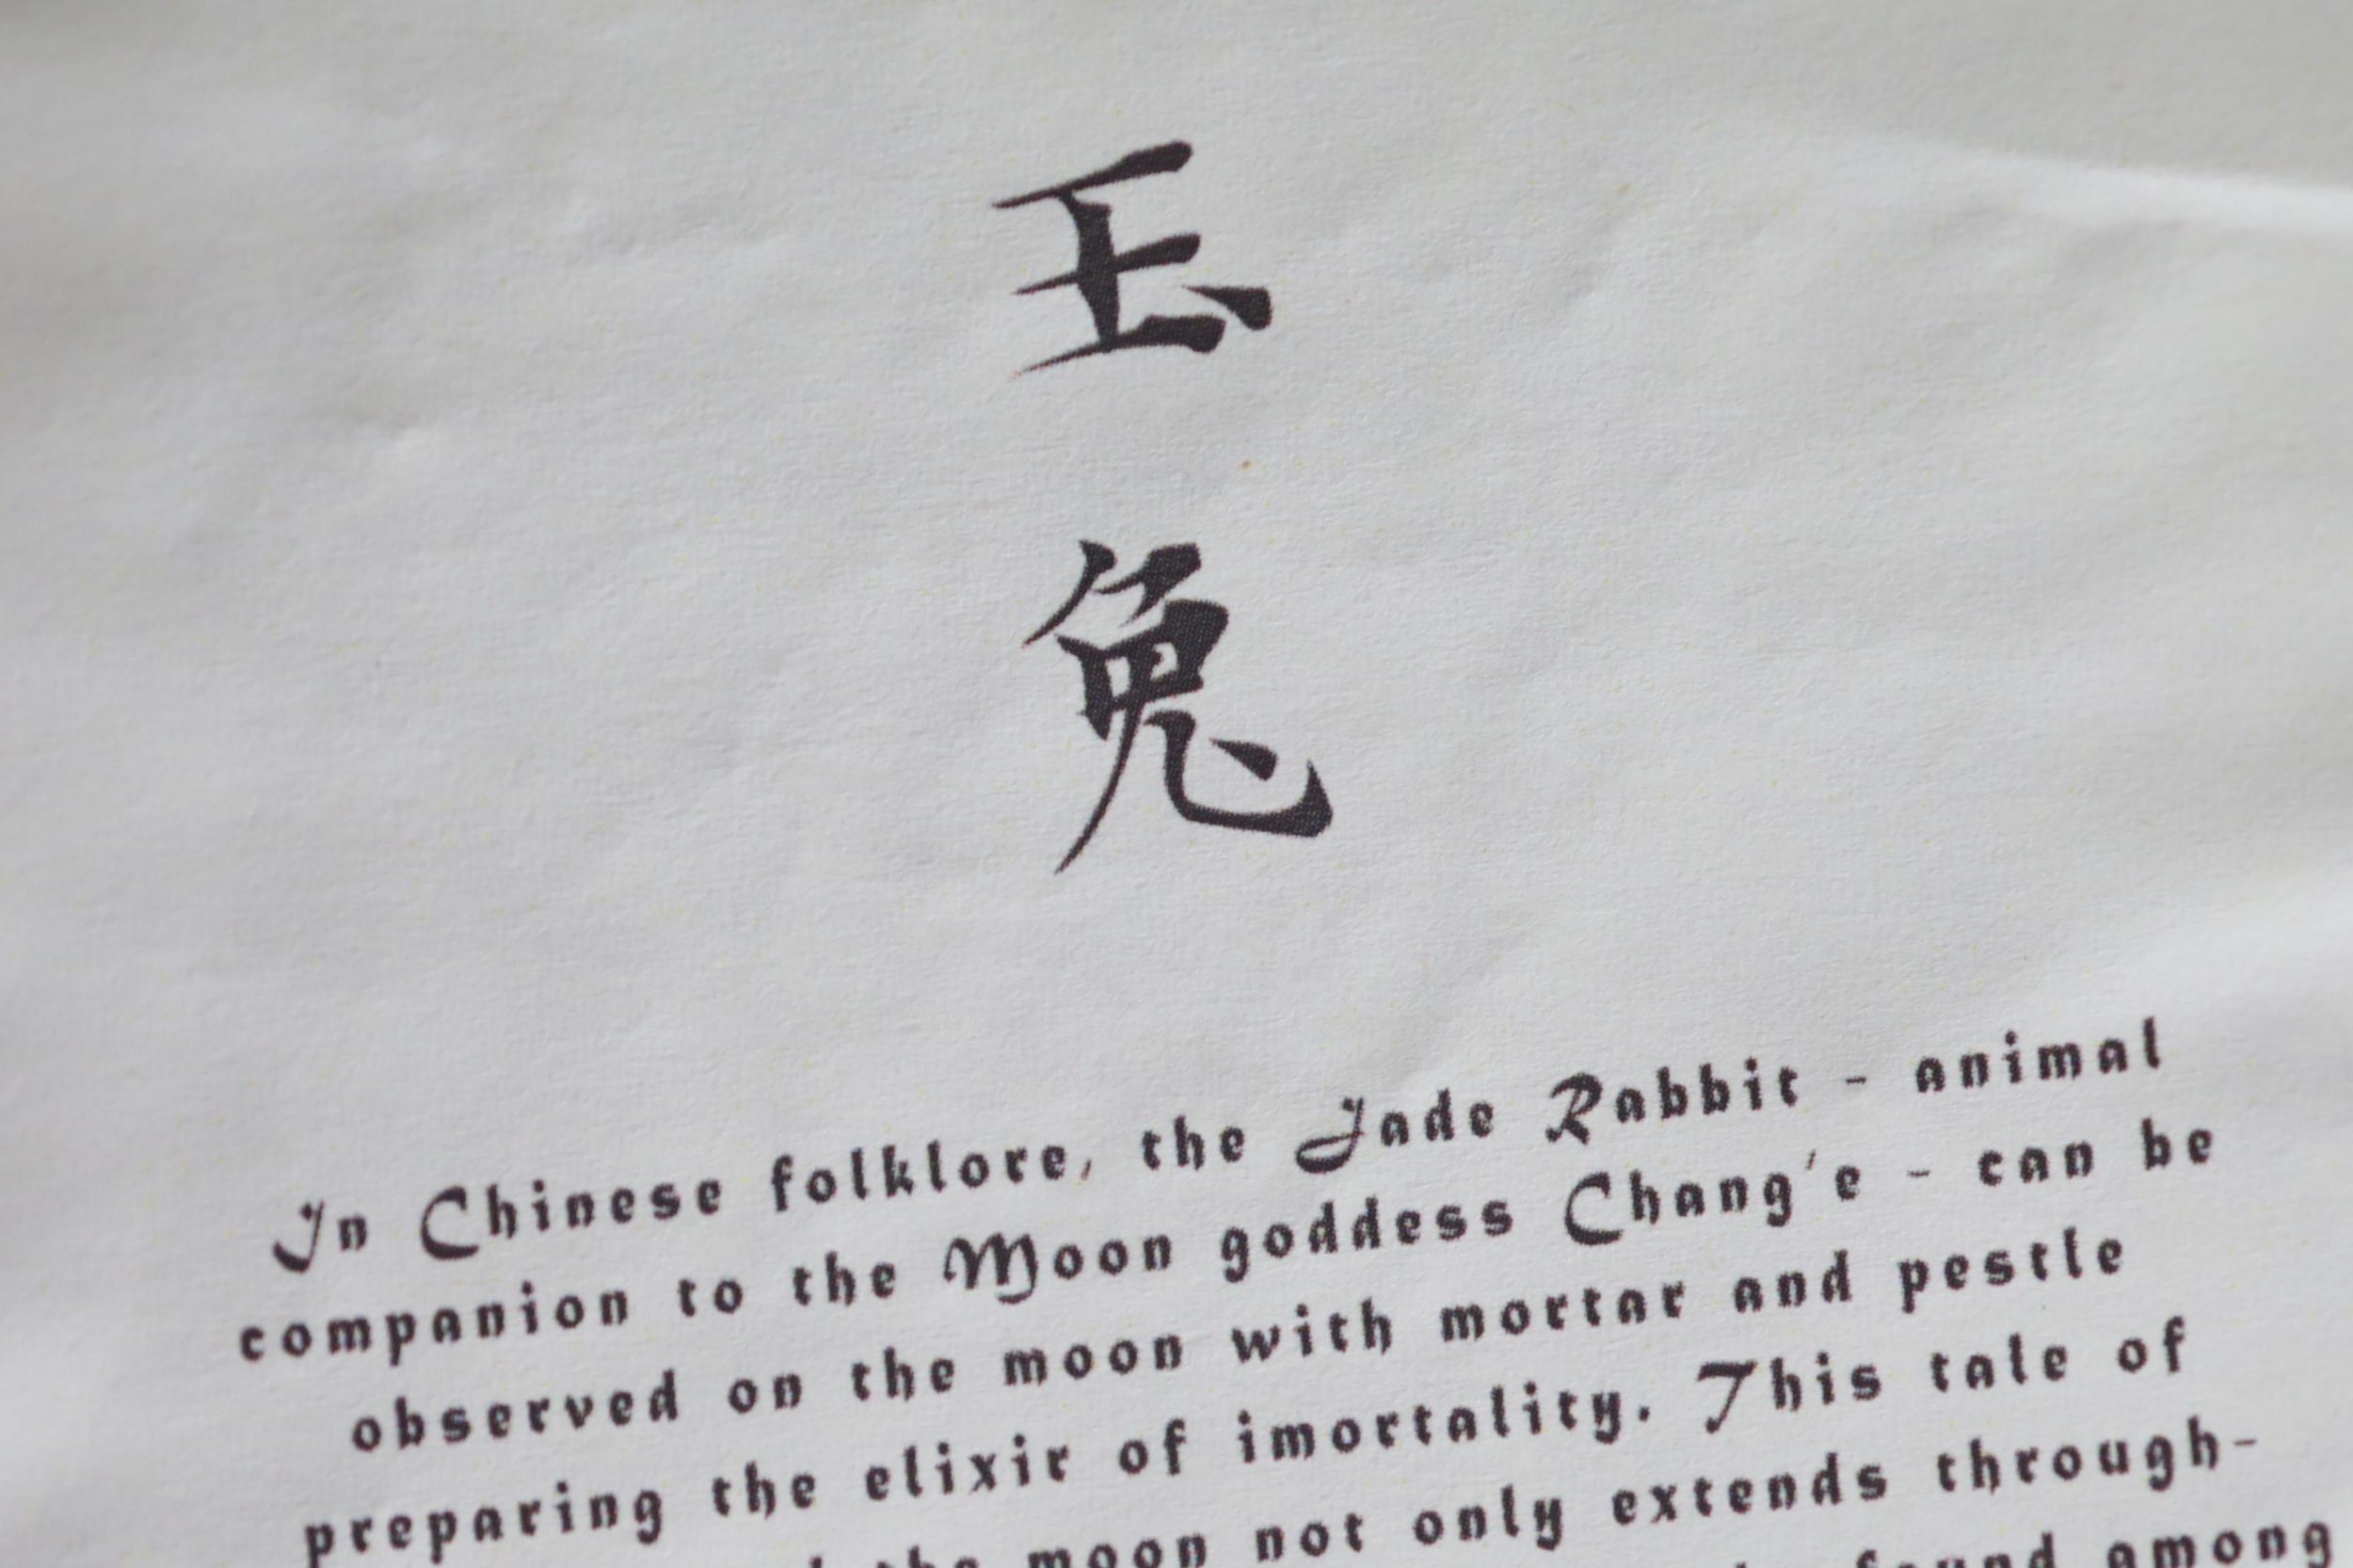 玉
兔
In Chinese folklore, the Jade Rabbit - animal
companion to the Moon goddess Chang'e - can be
observed on the moon with mortar and pestle
preparing the elixir of imortality. This tale of
the moon not only extends through-
found among